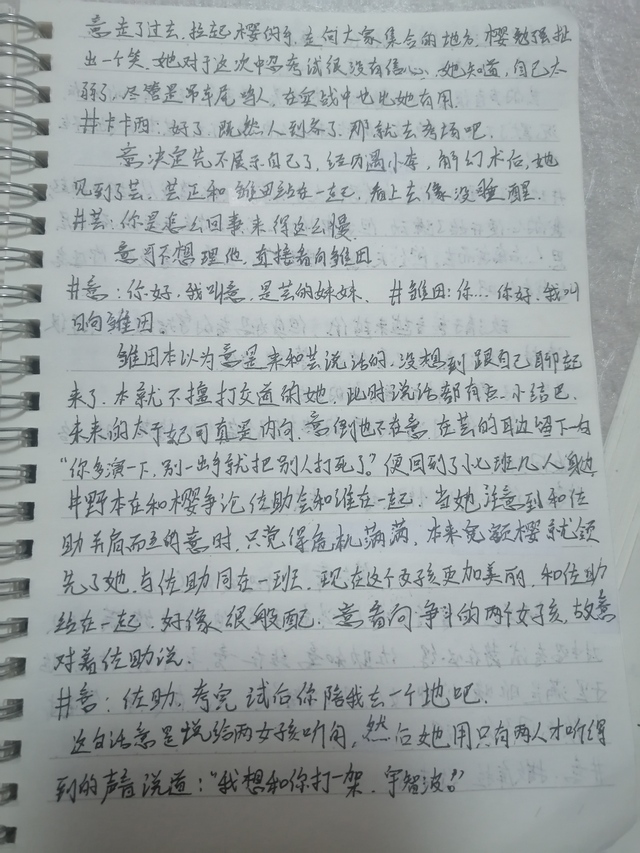 意走了过去，拉起樱的手，走向大家集合的地方，樱勉强扯
出一个笑。她对于这次中忍考试很没有信心，她知道，自己太
弱了，尽管是吊车尾鸣人，在实战中也比她有用。
#卡卡西：好了，既然人到齐了，那就去考场吧。
意决定先不展示自己了，经历遇小李，解幻术后，她
见到了芸。芸正和雏田站在一起，看上去像没睡醒。
#芸：你是怎么回事，来得这么慢
意可不想理他，直接看向雏田
#意：你好，我叫意，是芸的妹妹、 #雏田：你…你好，我叫
日向雏田
雏田本以为意是来和芸说话的，没想到跟自己聊起
来了，本就不擅打交道的她，此时说话都有点小结巴。
未来的太子妃可真是内向，意倒也不在意，在芸的耳边留下一句
“你多演一下，别一出手就把别人打死了”便回到了小七班几人身边
井野本在和樱争论佐助会和谁在一起，当她注意到和佐
助并肩而立的意时，只觉得危机满满，本来宽额樱就领
先了她，与佐助同在一班，现在这个女孩更加美丽，和佐助
站在一起，好像很般配。意看向争斗的两个女孩，故意
对着佐助说。
#意：佐助，考完试后你陪我去一个地吧。
这句话意是说给两女孩听的，然后她用只有两人才听得
到的声音说道：“我想和你打一架，宇智波！”